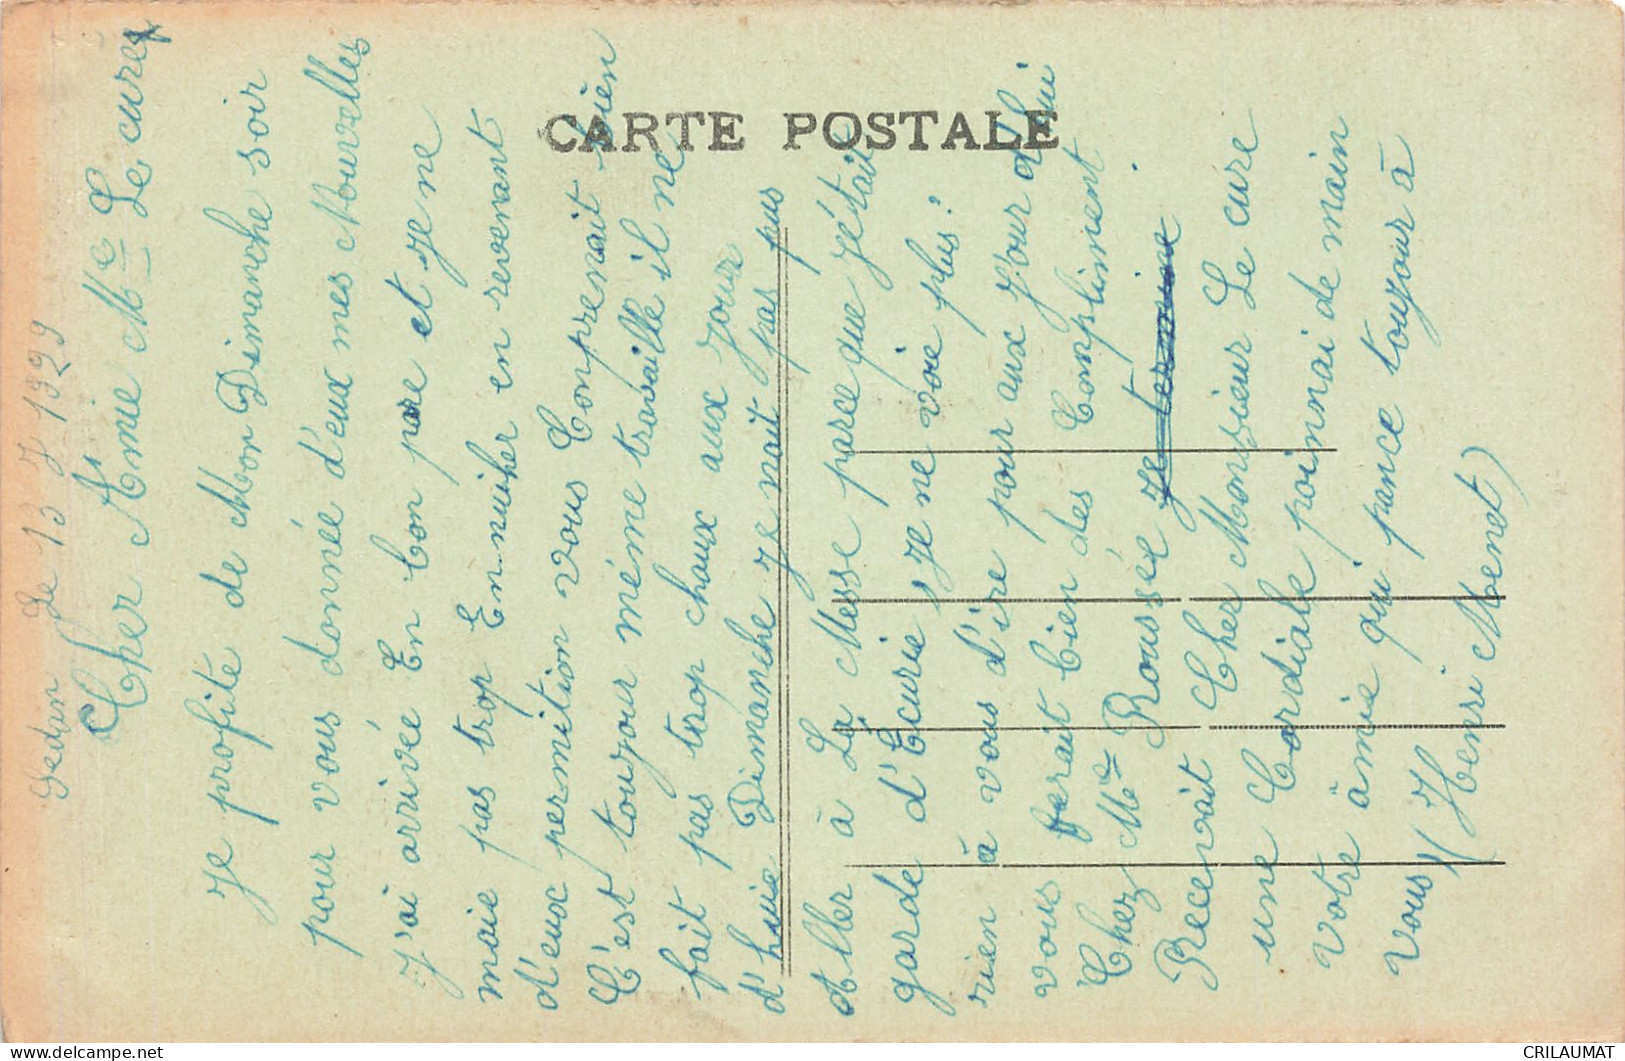 CARTE POSTALE
Sedan Le 13 J 1929
Cher Amie Mr Le curé
Je profite de Mon Dimanche soir
pour vous donnée d'eux mes Nouvelles
J'ai arrivée En bon pore et Je ne
maie pas trop Ennuiher en revenant
d'eux permition vous Comprenait bièn
C'est toujour méme travaille il ne
fait pas trop chaux aux Jour
d'huie Dimanche Je nait pas pus
Aller à La Messe parce que J'était
garde d'Ecurie Je ne voie plus!
rien à vous d'ire pour aux J'our d'hui
vous ferait bien des Compliment
Chez Mr Roussée Je termine
Recevait Cher Monsieur Le cure
une Cordiale poinnai de main
Votre âmie qui pance toujour à
vous (Henri Menet)
CRILAUMAT